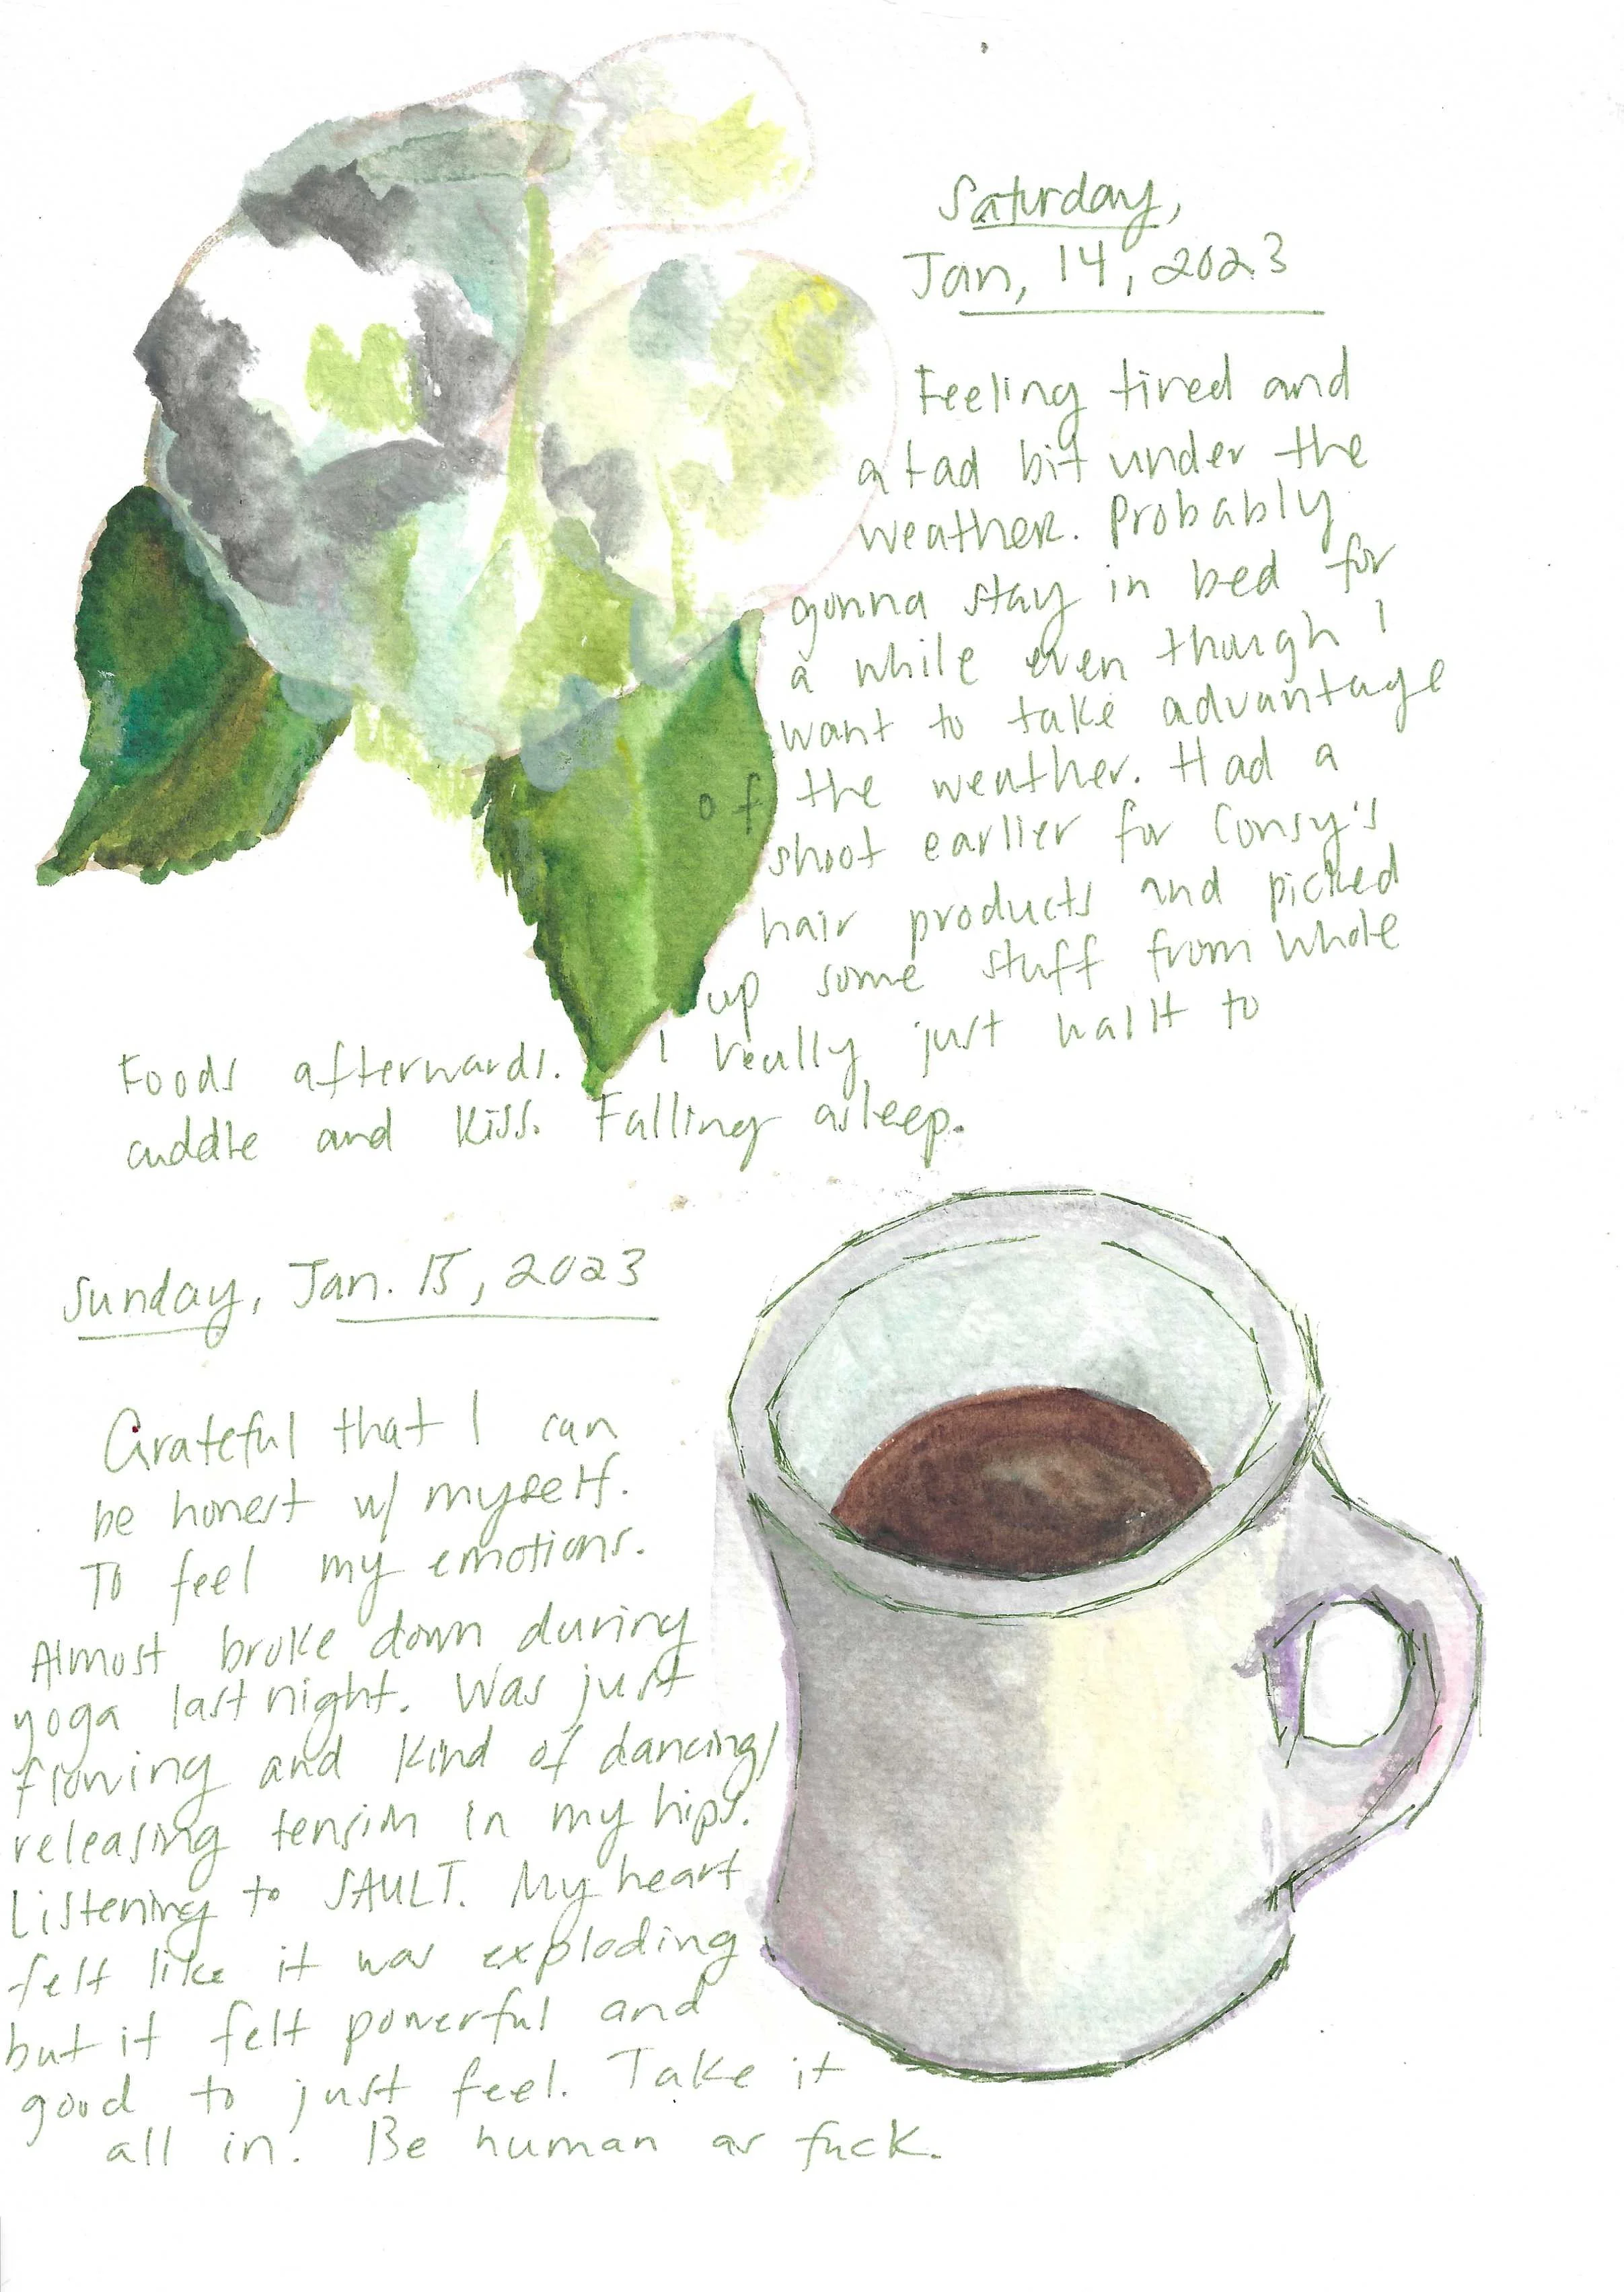 Saturday,
Jan, 14, 2023
Feeling tired and
a tad bit under the
weather. Probably
gonna stay in bed for
a while even though I
want to take advantage
of the weather. Had a
shoot earlier for Consy's
hair products and picked
up some stuff from Whole
Foods afterwards. I really just want to
cuddle and kiss. Falling asleep.
Sunday, Jan. 15, 2023
Grateful that I can
be honest w/ myself.
To feel my emotions.
Almost broke down during
yoga last night. Was just
flowing and kind of dancing/
releasing tension in my hips.
Listening to SAULT. My heart
felt like it was exploding
but it felt powerful and
good to just feel. Take it
all in. Be human as fuck.